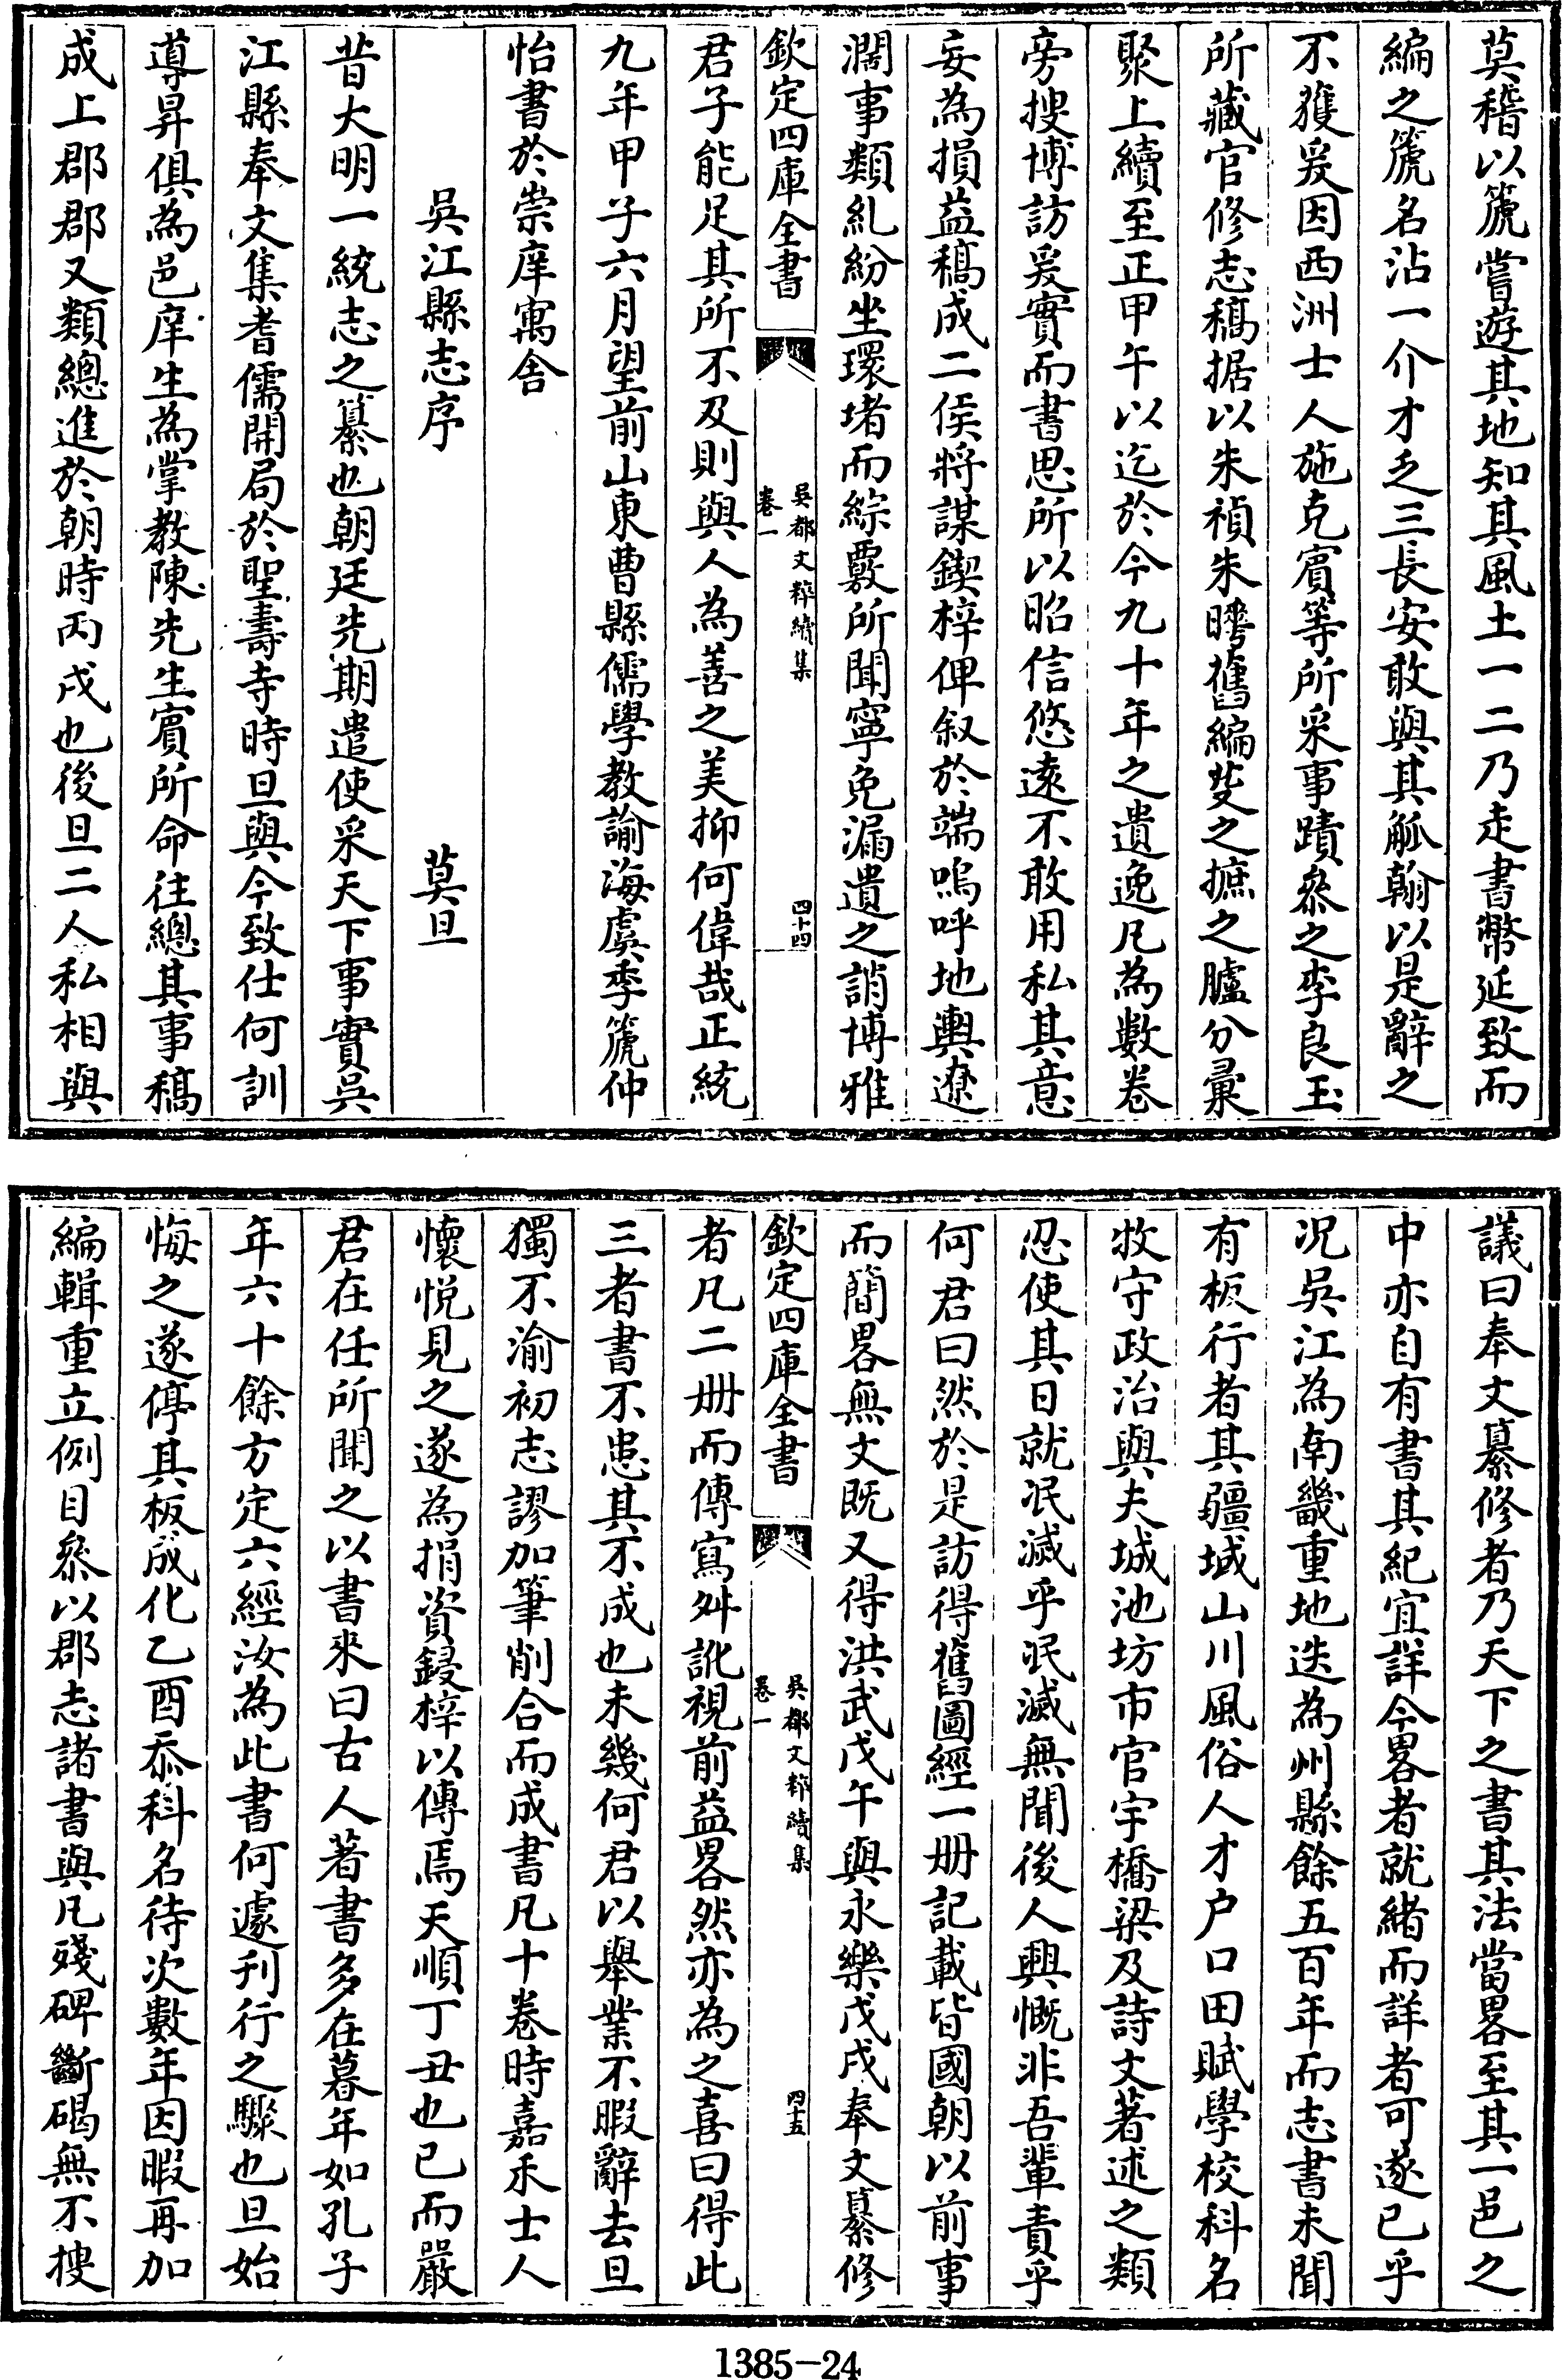 莫稽以篪嘗遊其地知其風土一二乃走書幣延致而
編之篪名沾一介才乏三長安敢與其觚翰以是辭之
不獲爰因西洲士人施克賓等所采事蹟叅之李良玉
所藏官修志稿据以朱禎朱㬇舊編芟之摭之臚分彙
聚上續至正甲午以迄於今九十年之遺逸凡為數卷
旁搜博訪爰實而書思所以昭信悠遠不敢用私其意
妄為損益稿成二侯將謀鍥梓俾叙於端嗚呼地輿遼
濶事類糺紛坐環堵而綜覈所聞寧免漏遺之誚博雅
欽定四庫全書
吳都文粹續集
卷一
四十四
君子能足其所不及則與人為善之美抑何偉哉正統
九年甲子六月望前山東曹縣儒學教諭海虞季篪仲
怡書於崇庠寓舍
吳江縣志序
莫旦
昔大明一統志之纂也朝廷先期遣使采天下事實吳
江縣奉文集耆儒開局於聖壽寺時旦與今致仕何訓
導昇俱為邑庠生為掌教陳先生賓所命往總其事稿
成上郡郡又類總進於朝時丙戌也後旦二人私相與
議曰奉文纂修者乃天下之書其法當畧至其一邑之
中亦自有書其紀宜詳今畧者就緒而詳者可遂已乎
况吳江為南畿重地迭為州縣餘五百年而志書未聞
有板行者其疆域山川風俗人才户口田賦學校科名
牧守政治與夫城池坊市官宇橋梁及詩文著述之類
忍使其日就泯滅乎泯滅無聞後人興慨非吾輩責乎
何君曰然於是訪得舊圖經一册記載皆國朝以前事
而簡畧無文既又得洪武戊午與永樂戊戌奉文纂修
欽定四庫全書
吳都文粹續集
卷一
四十五
者凡二册而傳寫舛訛視前益畧然亦為之喜曰得此
三者書不患其不成也未幾何君以舉業不暇辭去旦
獨不渝初志謬加筆削合而成書凡十卷時嘉禾士人
懷悅見之遂為捐資鋟梓以傳焉天順丁丑也已而嚴
君在任所聞之以書來曰古人著書多在暮年如孔子
年六十餘方定六經汝為此書何遽刋行之驟也旦始
悔之遂停其板成化乙酉忝科名待次數年因暇再加
編輯重立例目叅以郡志諸書與凡殘碑斷碣無不搜
1385-24